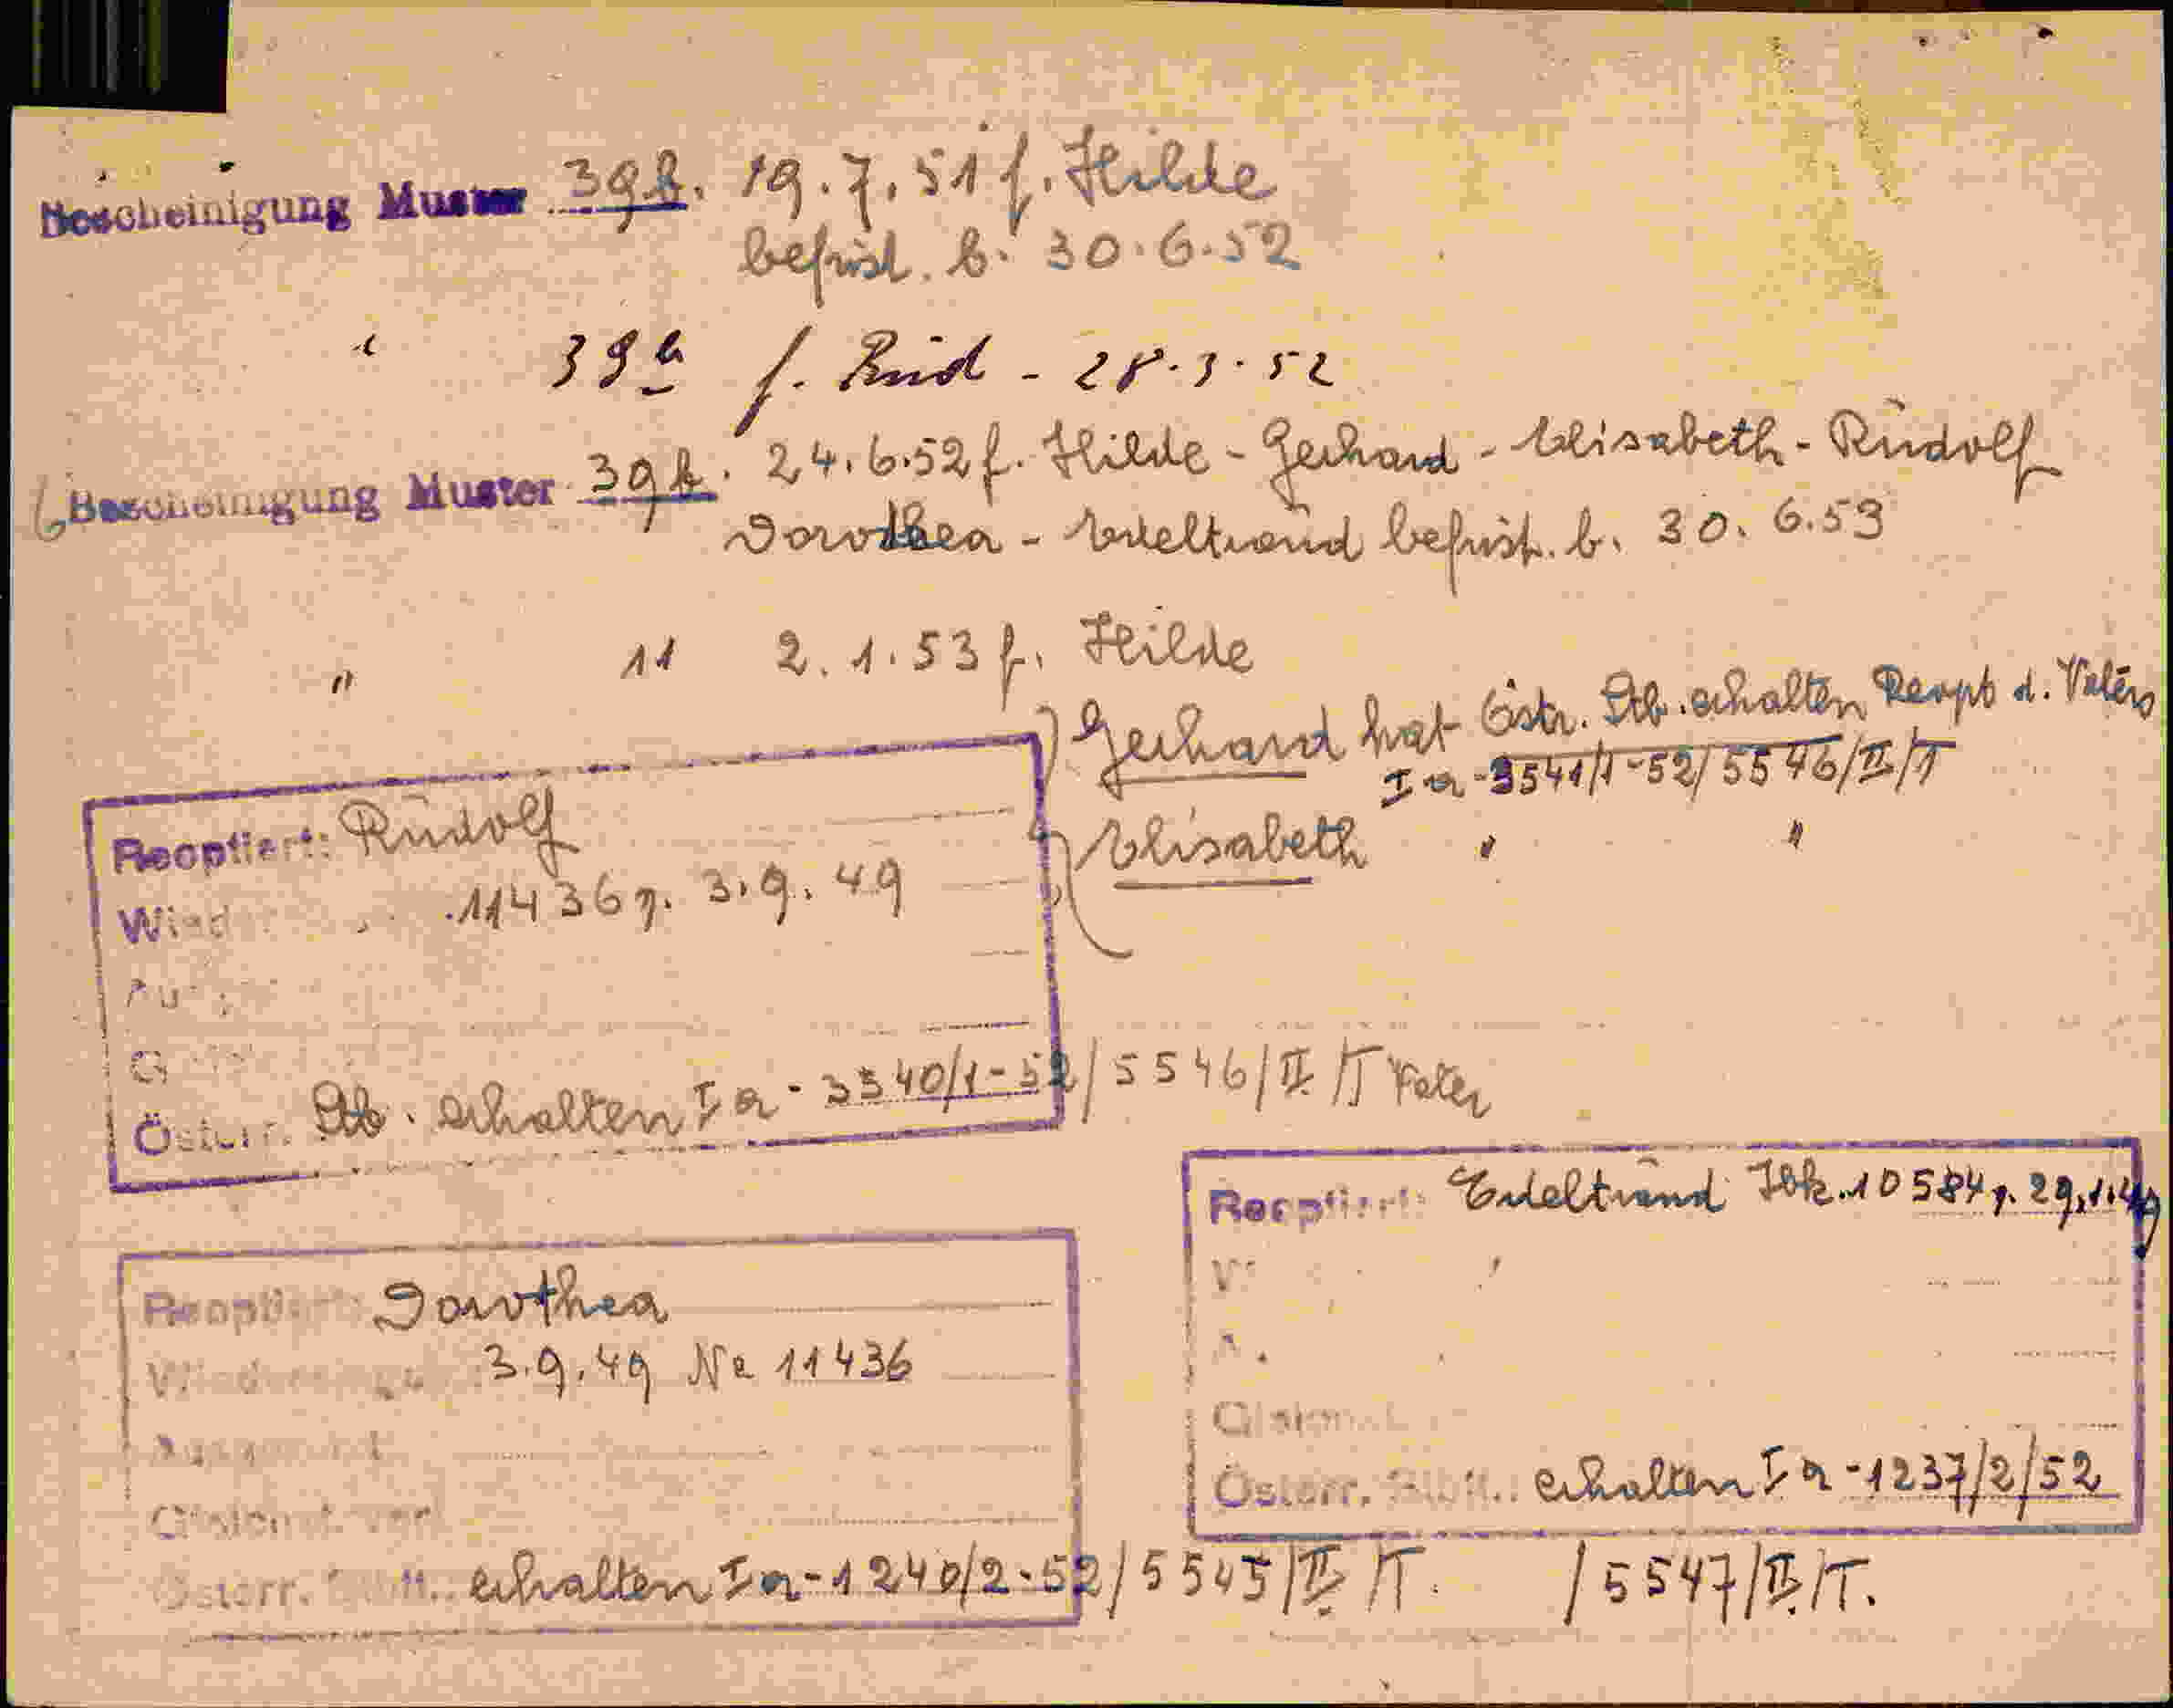 Bescheinigung Muster 39b. 19.7.51 f. Hilde
befrist. b. 30.6.52
" 39a f. Rud - 28.3.52
Bescheinigung Muster 39b. 24.6.52 f. Hilde - Gerhard - Elisabeth - Rudolf
Dorothea - Edeltraud befrist. b. 30.6.53
" 11 2.1.53 f. Hilde
Gerhard hat Östr. Stb. erhalten Reopt d. Vaters
Ia-3541/1-52/5546/II/T
Elisabeth " "
Reoptiert: Rudolf
11436 v. 3.9.49
Österr. Stb. erhalten Ia-3540/1-52/5546/II/T Vater
Reoptiert: Edeltraud Ibk. 10584 v. 29.1.49
Österr. Stbft.: erhalten Ia-1237/2/52
/5547/II/T.
Reoptiert: Dorothea
3.9.49 Nr 11436
Österr. Stbft.: erhalten Ia-1240/2-52/5545/II/T.